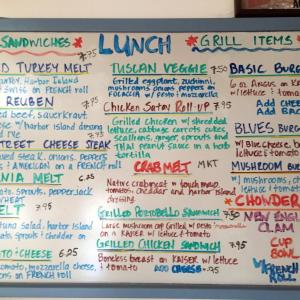 SANDWICHES
LUNCH
GRILL ITEMS
TURKEY MELT 7.95
Harbor Island
SWISS on FRENCH roll
REUBEN
beef, sauerkraut
w/ harbor island dressing
STREET CHEESE STEAK
steak, onions, peppers
AMERICAN on a FRENCH roll
MELT
tomato, sprouts, pepperjack
wheat
MELT
tuna salad, harbor island
tomato, sprouts + cheddar on
TOMATO + CHEESE 6.25
tomato, mozzarella cheese,
onions on FRENCH roll
TUSCAN VEGGIE 7.50
Grilled eggplant, zucchini,
mushrooms onions peppers on
FOCACCIA w/ PESTO + mozzarella
Chicken Satay Roll-up 7.95
Grilled Chicken w/ shredded
lettuce, cabbage carrots cukes,
scallions, ginger, sprouts and
THAI peanut sauce in a herb
tortilla
CRABMELT MKT
Native crabmeat w/ touch mayo
tomato + cheddar and harbor island
dressing
Grilled Portobello Sandwich 7.50
Large mushroom cap Grilled w/ pesto + mozzarella
on a KAISER w/ lettuce + tomato
GRILLED CHICKEN SANDWICH 7.25
Boneless breast on KAISER w/ lettuce
+ tomato add CHEESE
BASIC BURG
6 oz. Angus on
w/ lettuce + tom
Add CHEE
Add BAC
BLUES BURG
w/ Blue cheese, b
lettuce + tomat
MUSHROOM
w/ mushrooms + ch
lettuce + tomato
CHOWDER
NEW ENGL
CLAM
CUP
BOWL
w/ FRENCH
ROLL